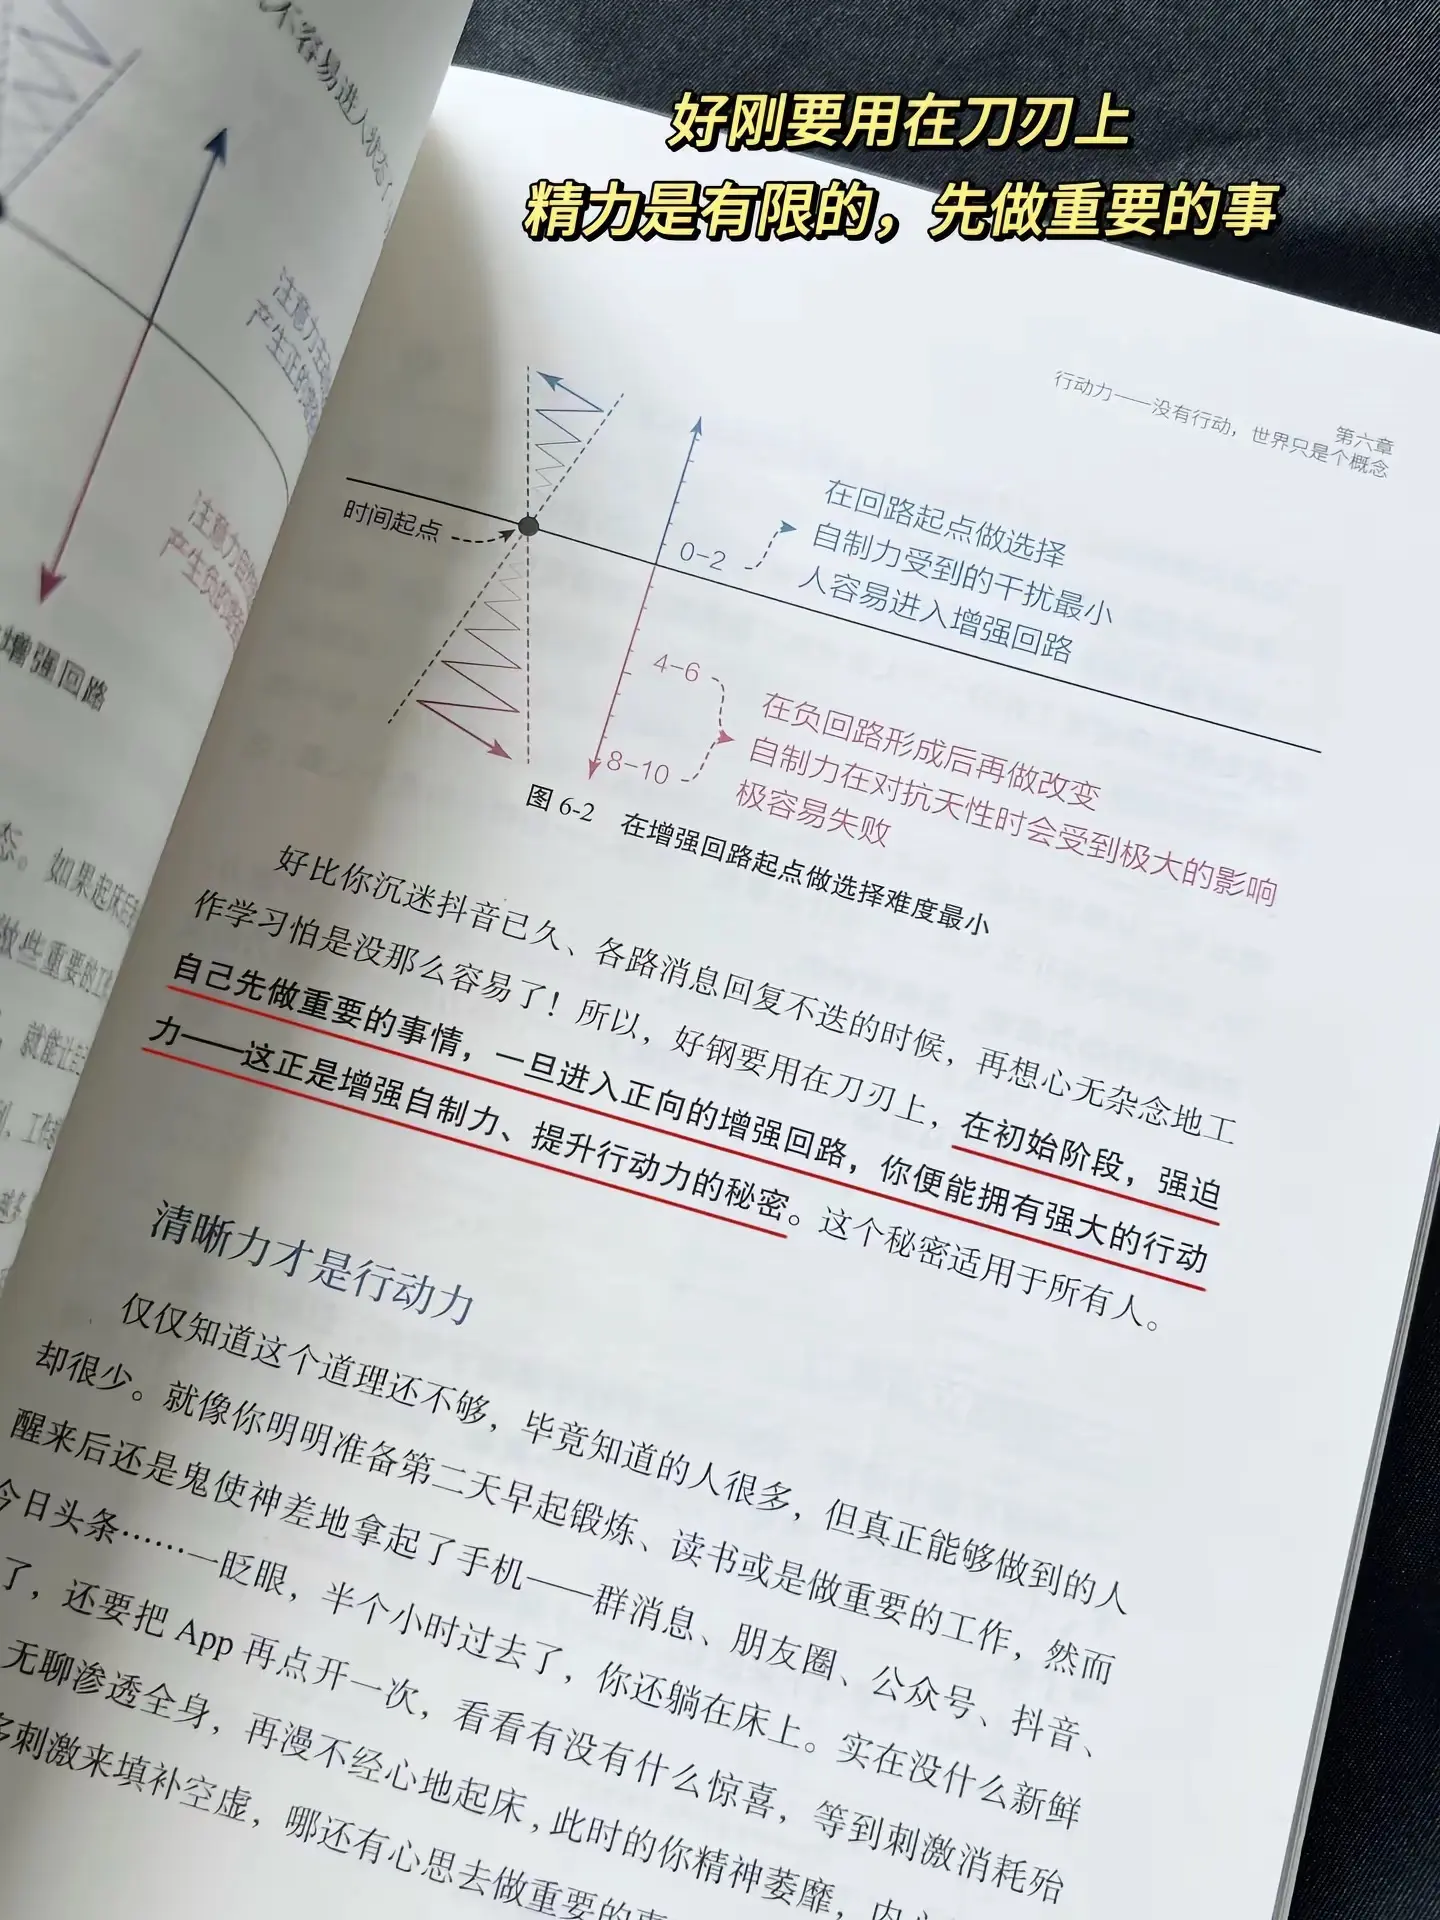 好刚要用在刀刃上
精力是有限的，先做重要的事
不容易进入状态
产生正的增
产生负的增
增强回路
态。如果起床后
做些重要的工作
就能让
第六章
行动力——没有行动，世界只是个概念
时间起点
0-2
在回路起点做选择
自制力受到的干扰最小
人容易进入增强回路
4-6
8-10
在负回路形成后再做改变
自制力在对抗天性时会受到极大的影响
极容易失败
图 6-2 在增强回路起点做选择难度最小
好比你沉迷抖音已久、各路消息回复不迭的时候，再想心无杂念地工
作学习怕是没那么容易了！所以，好钢要用在刀刃上，在初始阶段，强迫
自己先做重要的事情，一旦进入正向的增强回路，你便能拥有强大的行动
力——这正是增强自制力、提升行动力的秘密。这个秘密适用于所有人。
清晰力才是行动力
仅仅知道这个道理还不够，毕竟知道的人很多，但真正能够做到的人
却很少。就像你明明准备第二天早起锻炼、读书或是做重要的工作，然而
醒来后还是鬼使神差地拿起了手机——群消息、朋友圈、公众号、抖音、
今日头条……一眨眼，半个小时过去了，你还躺在床上。实在没什么新鲜
了，还要把 App 再点开一次，看看有没有什么惊喜，等到刺激消耗殆
无聊渗透全身，再漫不经心地起床，此时的你精神萎靡，内心
多刺激来填补空虚，哪还有心思去做重要的事